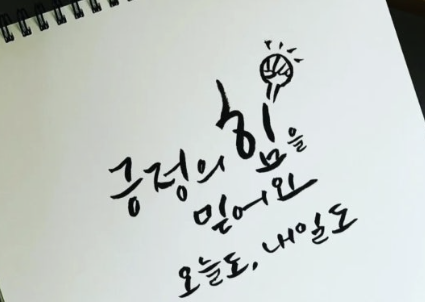 긍정의 힘을
믿어요
오늘도, 내일도